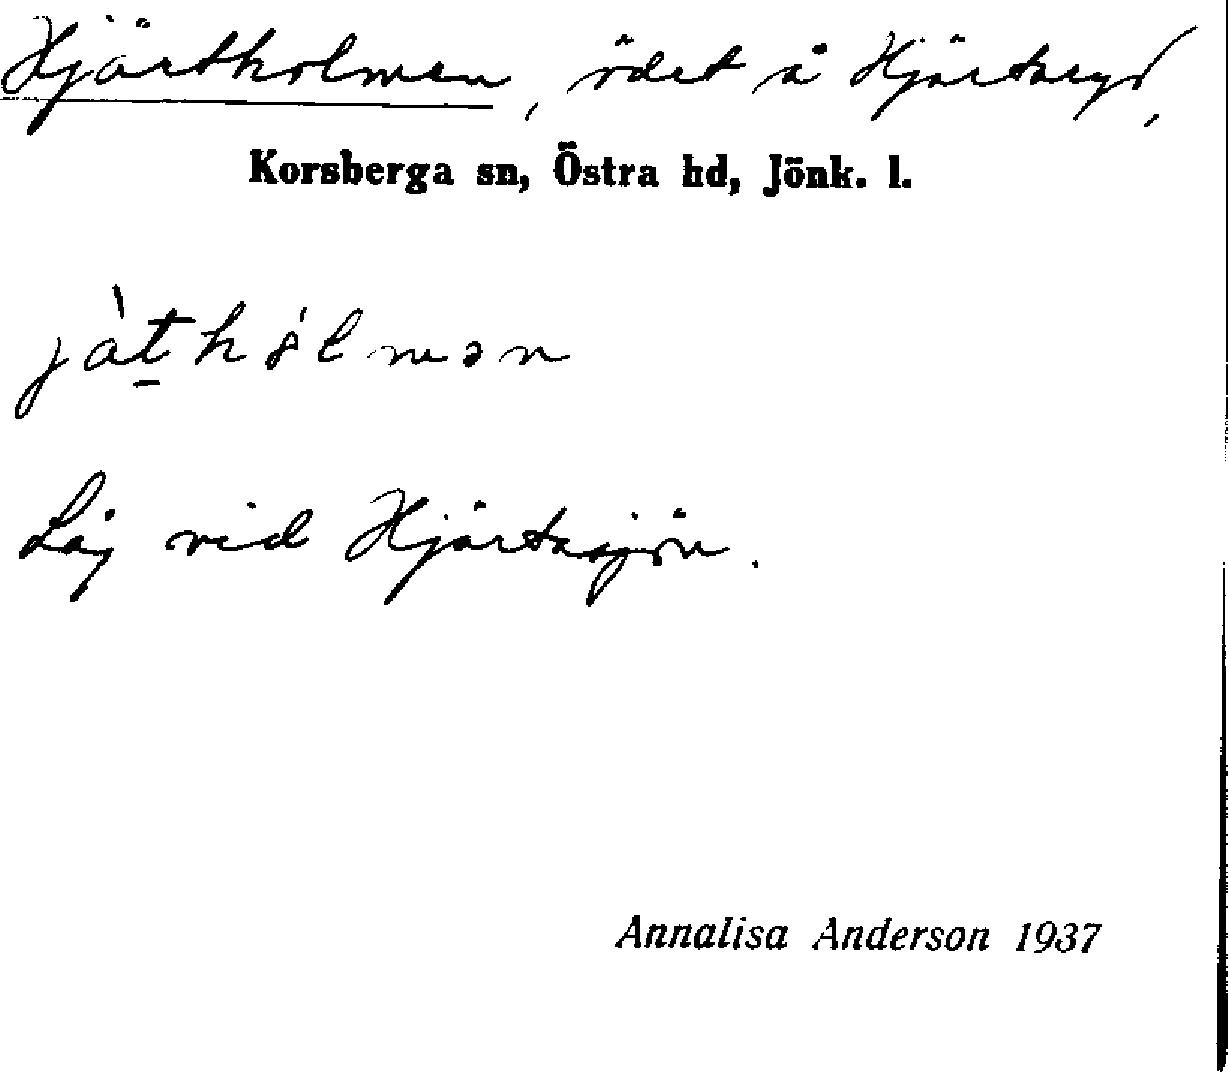 Hjärtholmen, ödet å Hjärtaryd,
Korsberga sn, Östra hd, Jönk. l.
Låg vid Hjärtasjön.
Annalisa Anderson 1937